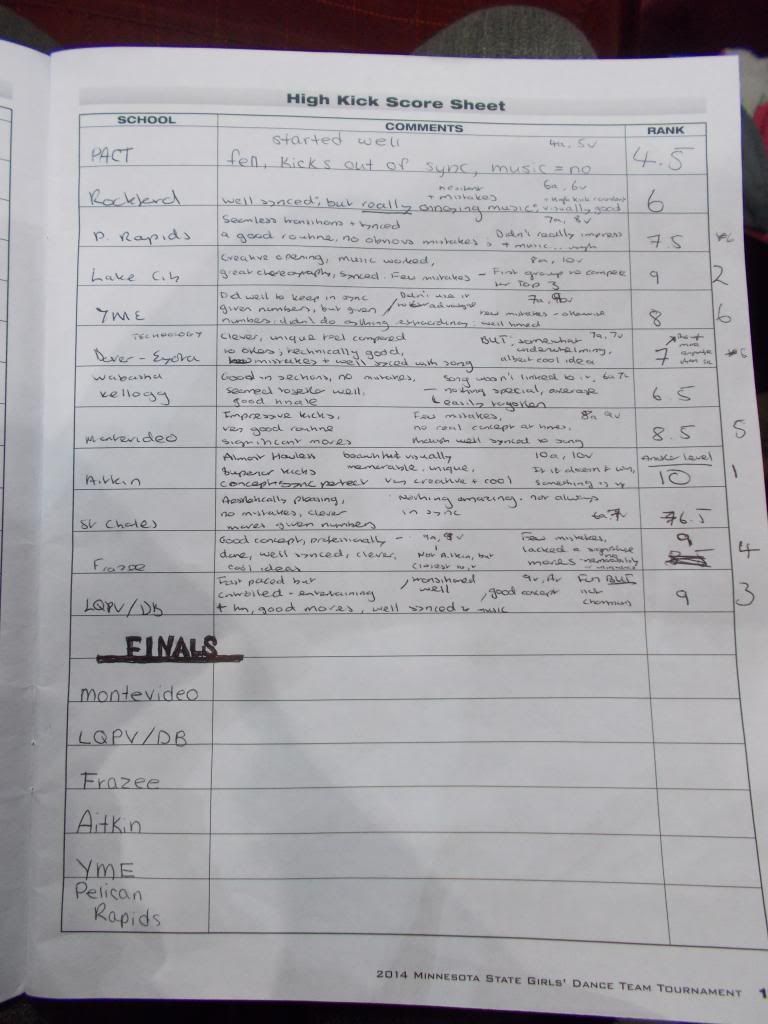 High Kick Score Sheet
SCHOOL COMMENTS RANK
PACT started well 4a, 5v 4.5
fell, kicks out of sync, music = no
Rockford + mistakes 6a, 6v 6
well synced; but really annoying music; visually good
P. Rapids Seamless transitions + synced 7a, 8v 7.5
a good routine, no obvious mistakes Didn't really impress + music...
Lake City Creative opening, music worked, 8a, 10v 9 2
great choreography, synced. Few mistakes - First group to compete for Top 3
YME Did well to keep in sync Didn't use it 8 6
given numbers, but given few mistakes - otherwise
numbers, didn't do anything extraordinary. well timed
TECHNOLOGY
Dover - Eyota Clever, unique feel compared BUT, somewhat 7a, 7v 7
to others; technically good, underwhelming,
mistakes + well synced with song albeit cool idea
Wabasha Kellogg Good in sections, no mistakes, Song wasn't linked to it, 6a 7v 6.5
seemed together well, - nothing special, average
good finale easily forgotten
Montevideo Impressive kicks, Few mistakes, 8a 9v 8.5 5
very good routine no real concept at times,
significant moves though well synced to song
Aitkin Almost flawless beautiful visually 10a, 10v 10 1
Superior kicks memorable, unique, If it doesn't win,
concept sync perfect very creative + cool something is up
St Charles Aesthetically pleasing, Nothing amazing. not always 6.5
no mistakes, clever in sync
moves given numbers
Frazee Good concept, professionally 9a, Few mistakes, 9 4
done, well synced, clever, Not Aitkin, but lacked a
cool ideas closest to it moves
LQPV/DB Fast paced but transitioned 9v, Fun BUT 9 3
entertaining well, good concept not
+ fun, good moves, well synced to music
FINALS
Montevideo
LQPV/DB
Frazee
Aitkin
YME
Pelican
Rapids
2014 MINNESOTA STATE GIRLS' DANCE TEAM TOURNAMENT 1